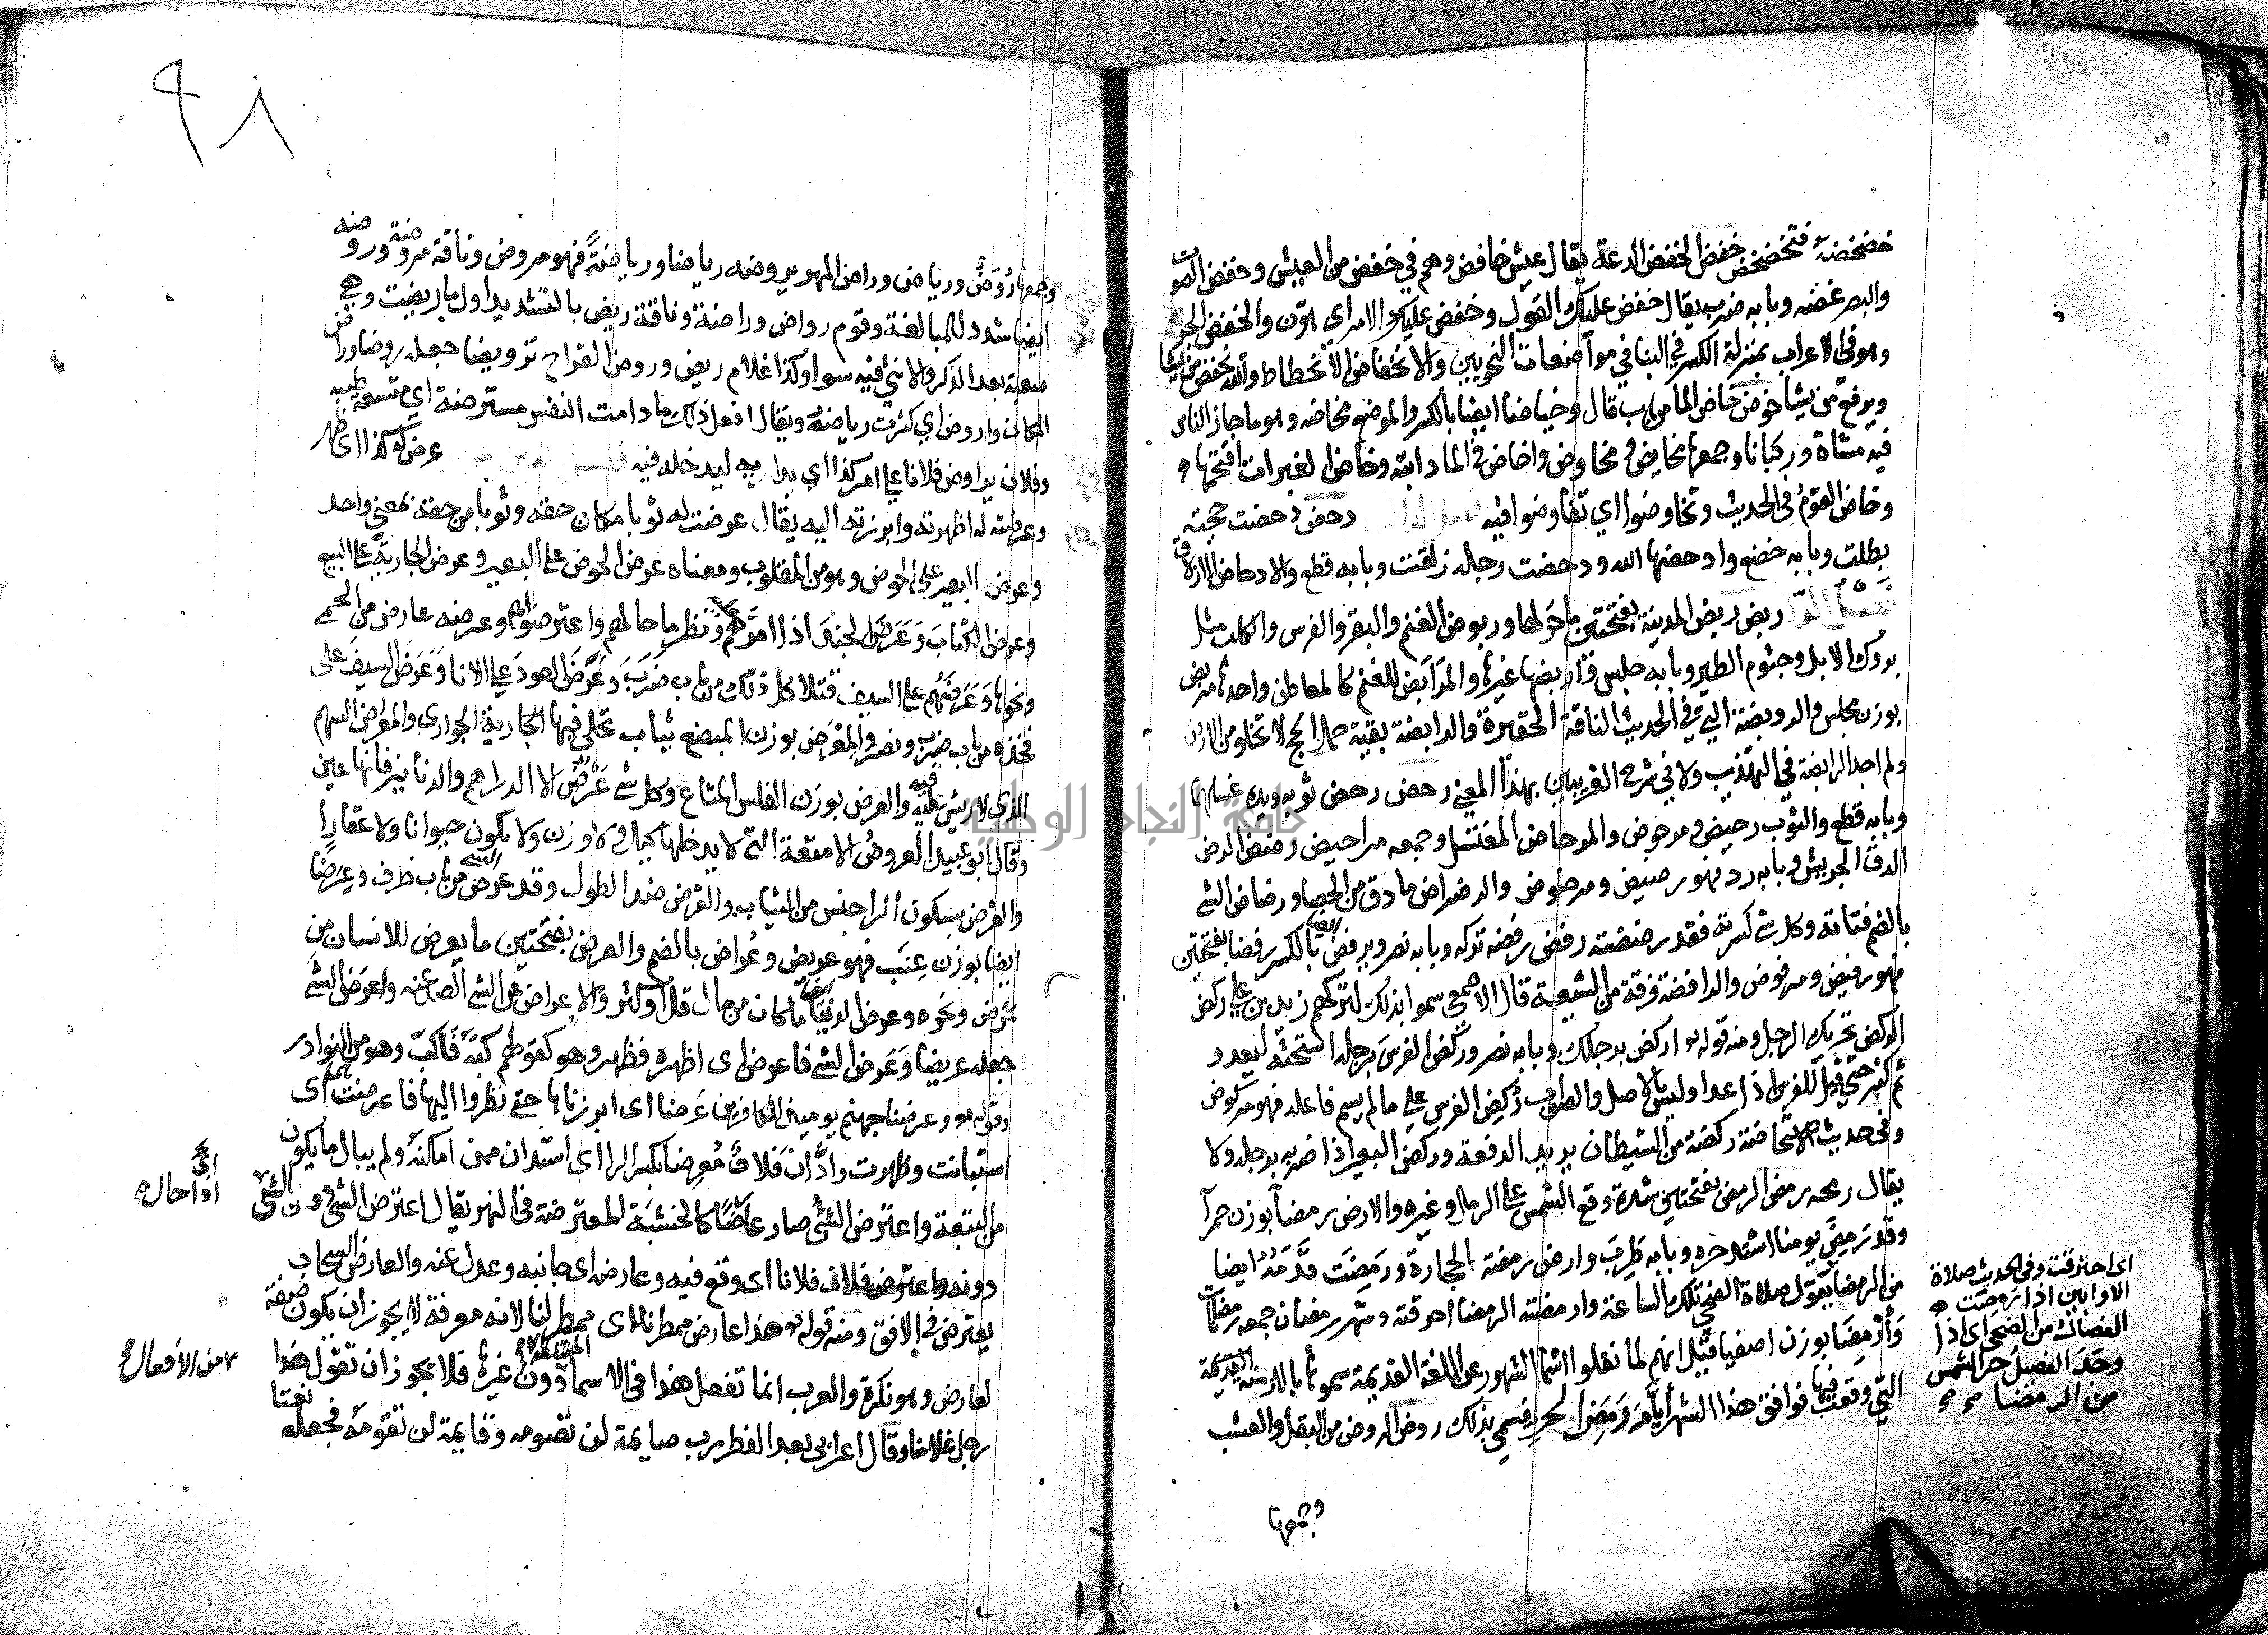 خضخضه فتخضخض خفض الخفض الدعة يقال عيش خافض وهم في خفض من العيش وخفض الصوت
والبصر غضه وبابه ضرب يقال خفض عليك القول وخفض عليك الامر اي هون والخفض الجر
وهو في الاعراب بمنزلة الكسر في البنا في مواضعات النحويين والانخفاض الانحطاط والله يخفض من يشا
ويرفع من يشا خوض خاض الما من باب قال وخياضا ايضا بالكسر والموضع مخاضه وهو ما جاز الناس
فيه مشاة وركبانا وجمعها مخايض ومخاوض واخاض في الما دابته وخاض الغمرات اقتحمها
وخاض القوم في الحديث وتخاوضوا اي تفاوضوا فيه دحض دحضت حجته
بطلت وبابه خضع وادحضها الله ودحضت رجله زلقت وبابه قطع والادحاض الازلاق
ربض ربض المدينة بفتحتين ما حولها وربوض الغنم والبقر والفرس والكلب مثل
بروك الابل وجثوم الطير وبابه جلس واربضها غيرها والمرابض للغنم كالمعاطن واحدها مربض
بوزن مجلس والرويبضة التي في الحديث الناقة الحقيرة والرابضة بقية حملة الحجة لا تخلو منهم الارض
ولم اجد الرابضة في التهذيب ولا في شرح الغريبين بهذا المعني رحض رحض ثوبه ويده غسلهما
وبابه قطع والثوب رحيض ومرحوض والمرحاض المغتسل وجمعه مراحيض رضض الرض
الدق الجريش وبابه رد فهو رضيض ومرضوض والرضراض ما دق من الحصا ورضاض الشي
بالضم فتاته وكل شي كسرته فقد رضضته رفض رفضه تركه وبابه نصر ويرفض ايضا بالكسر رفضا بفتحتين
فهو رفيض ومرفوض والرافضة فرقة من الشيعة قال الاصمعي سموا بذلك لتركهم زيد بن علي ركض
الركض تحريك الرجل ومنه قوله تع اركض برجلك وبابه نصر وركض الفرس برجله استحثه ليعدو
ثم كثر حتى قيل للفرس اذا عدا وليس بالاصل والصواب ركض الفرس علي ما لم يسم فاعله فهو مركوض
وفي حديث الاستحاضة ركضة من الشيطان يريد الدفعة وركض البعير اذا ضربه برجله ولا
يقال رمحه رمض الرمض بفتحتين شدة وقع الشمس علي الرمل وغيره والارض رمضا بوزن حمرا
وقد رمض يومنا اشتد حره وبابه طرب وارض رمضة الحجارة ورمضت قدمه ايضا
من الرمضا بقول صلاة الضحي تلك الساعة وارمضته الرمضا احرقته وشهر رمضان جمعه رمضانات
وارمضا بوزن اصفيا قيل انهم لما نقلوا اسما الشهور عن اللغة القديمة سموها بالازمنة القديمة
التي وقعت فيها فوافق هذا الشهر ايام رمض الحر فسمي بذلك روض الروض من البقل والعشب
اي احترقت وفي الحديث صلاة
الاوابين اذا رمضت
الفصال من الضحي اي اذا
وجد الفصيل حر الشمس
من الرمضا
وجمعها
٩٨
وجمعها روض ورياض وراض المهر يروضه رياضا ورياضة فهو مروض وناقة مروضة وروضه
ايضا شدد للمبالغة وقوم رواض وراضة وناقة ريض بالتشديد اول ما ريضت وهي
صعبة بعد الذكر والانثي فيه سوا وكذا غلام ريض وروض القراح ترويضا جعله روضا وراض
المكان واروض اي كثرت رياضه ويقال افعل ذلك ما دامت النفس مستريضة اي متسعة طيبه
وفلان يراوض فلانا علي امر كذا اي يداريه ليدخله فيه عرض له كذا اي ظهر
وعرضته له اظهرته وابرزته اليه يقال عرضت له ثوبا مكان حقه وثوبا من حقه بمعني واحد
وعرض البعير على الحوض وهو من المقلوب ومعناه عرض الحوض على البعير وعرض الجارية علي البيع
وعرض الكتاب وعرض الجند اذا امرهم عليه ونظر ما حالهم واعترضهم وعرضه عارض من الحمي
ونحوها وعرضهم علي السيف قتلا كل ذلك من باب ضرب وعرض العود علي الانا وعرض السيف على
فخذه من باب ضرب ونصر والمعرض بوزن المبضع ثياب تجلى فيها الجارية الجواري والمعراض السهم
الذي لا ريش عليه والعرض بوزن الفلس المتاع وكل شي عرض الا الدراهم والدنانير فانها عين
وقال ابو عبيد العروض الامتعة التي لا يدخلها كيل ولا وزن ولا يكون حيوانا ولا عقارا
والعرض بسكون الرا جنس من الثياب والعرض ضد الطول وقد عرض الشي من باب ظرف وعرضا
ايضا بوزن عنب فهو عريض وعراض بالضم والعرض بفتحتين ما يعرض للانسان من
مرض ونحوه وعرض الدنيا ايضا ما كان من مال قل او كثر والاعراض عن الشي الصد عنه واعرض الشي
جعله عريضا وعرض الشي فاعرض اي اظهره فظهر وهو كقولهم كبه فاكب وهو من النوادر
وقوله تع وعرضنا جهنم يومئذ للكافرين عرضا اي ابرزناها حتى نظروا اليها فاعرضت هي اي
استبانت وظهرت وادان فلان معرضا بكسر الرا اي استدان ممن امكنه ولم يبال ما يكون
من التبعة واعترض الشي صار عارضا كالخشبة المعترضة في النهر يقال اعترض الشي دون الشي
دونه واعترض فلان فلانا اي وقع فيه وعارضه اي جانبه وعدل عنه والعارض السحاب
يعترض في الافق ومنه قوله تع هذا عارض ممطرنا اي ممطر لنا لانه معرفة لا يجوز ان يكون صفة
لعارض وهو نكرة والعرب انما تفعل هذا في الاسما المشتقة دون غيرها فلا يجوز ان تقول هذا
رجل غلامنا وقال اعرابي بعد الفطر رب صايمه لن تصومه وقايمة لن تقومه فجعله نعتا
اي حال
من الأفعال